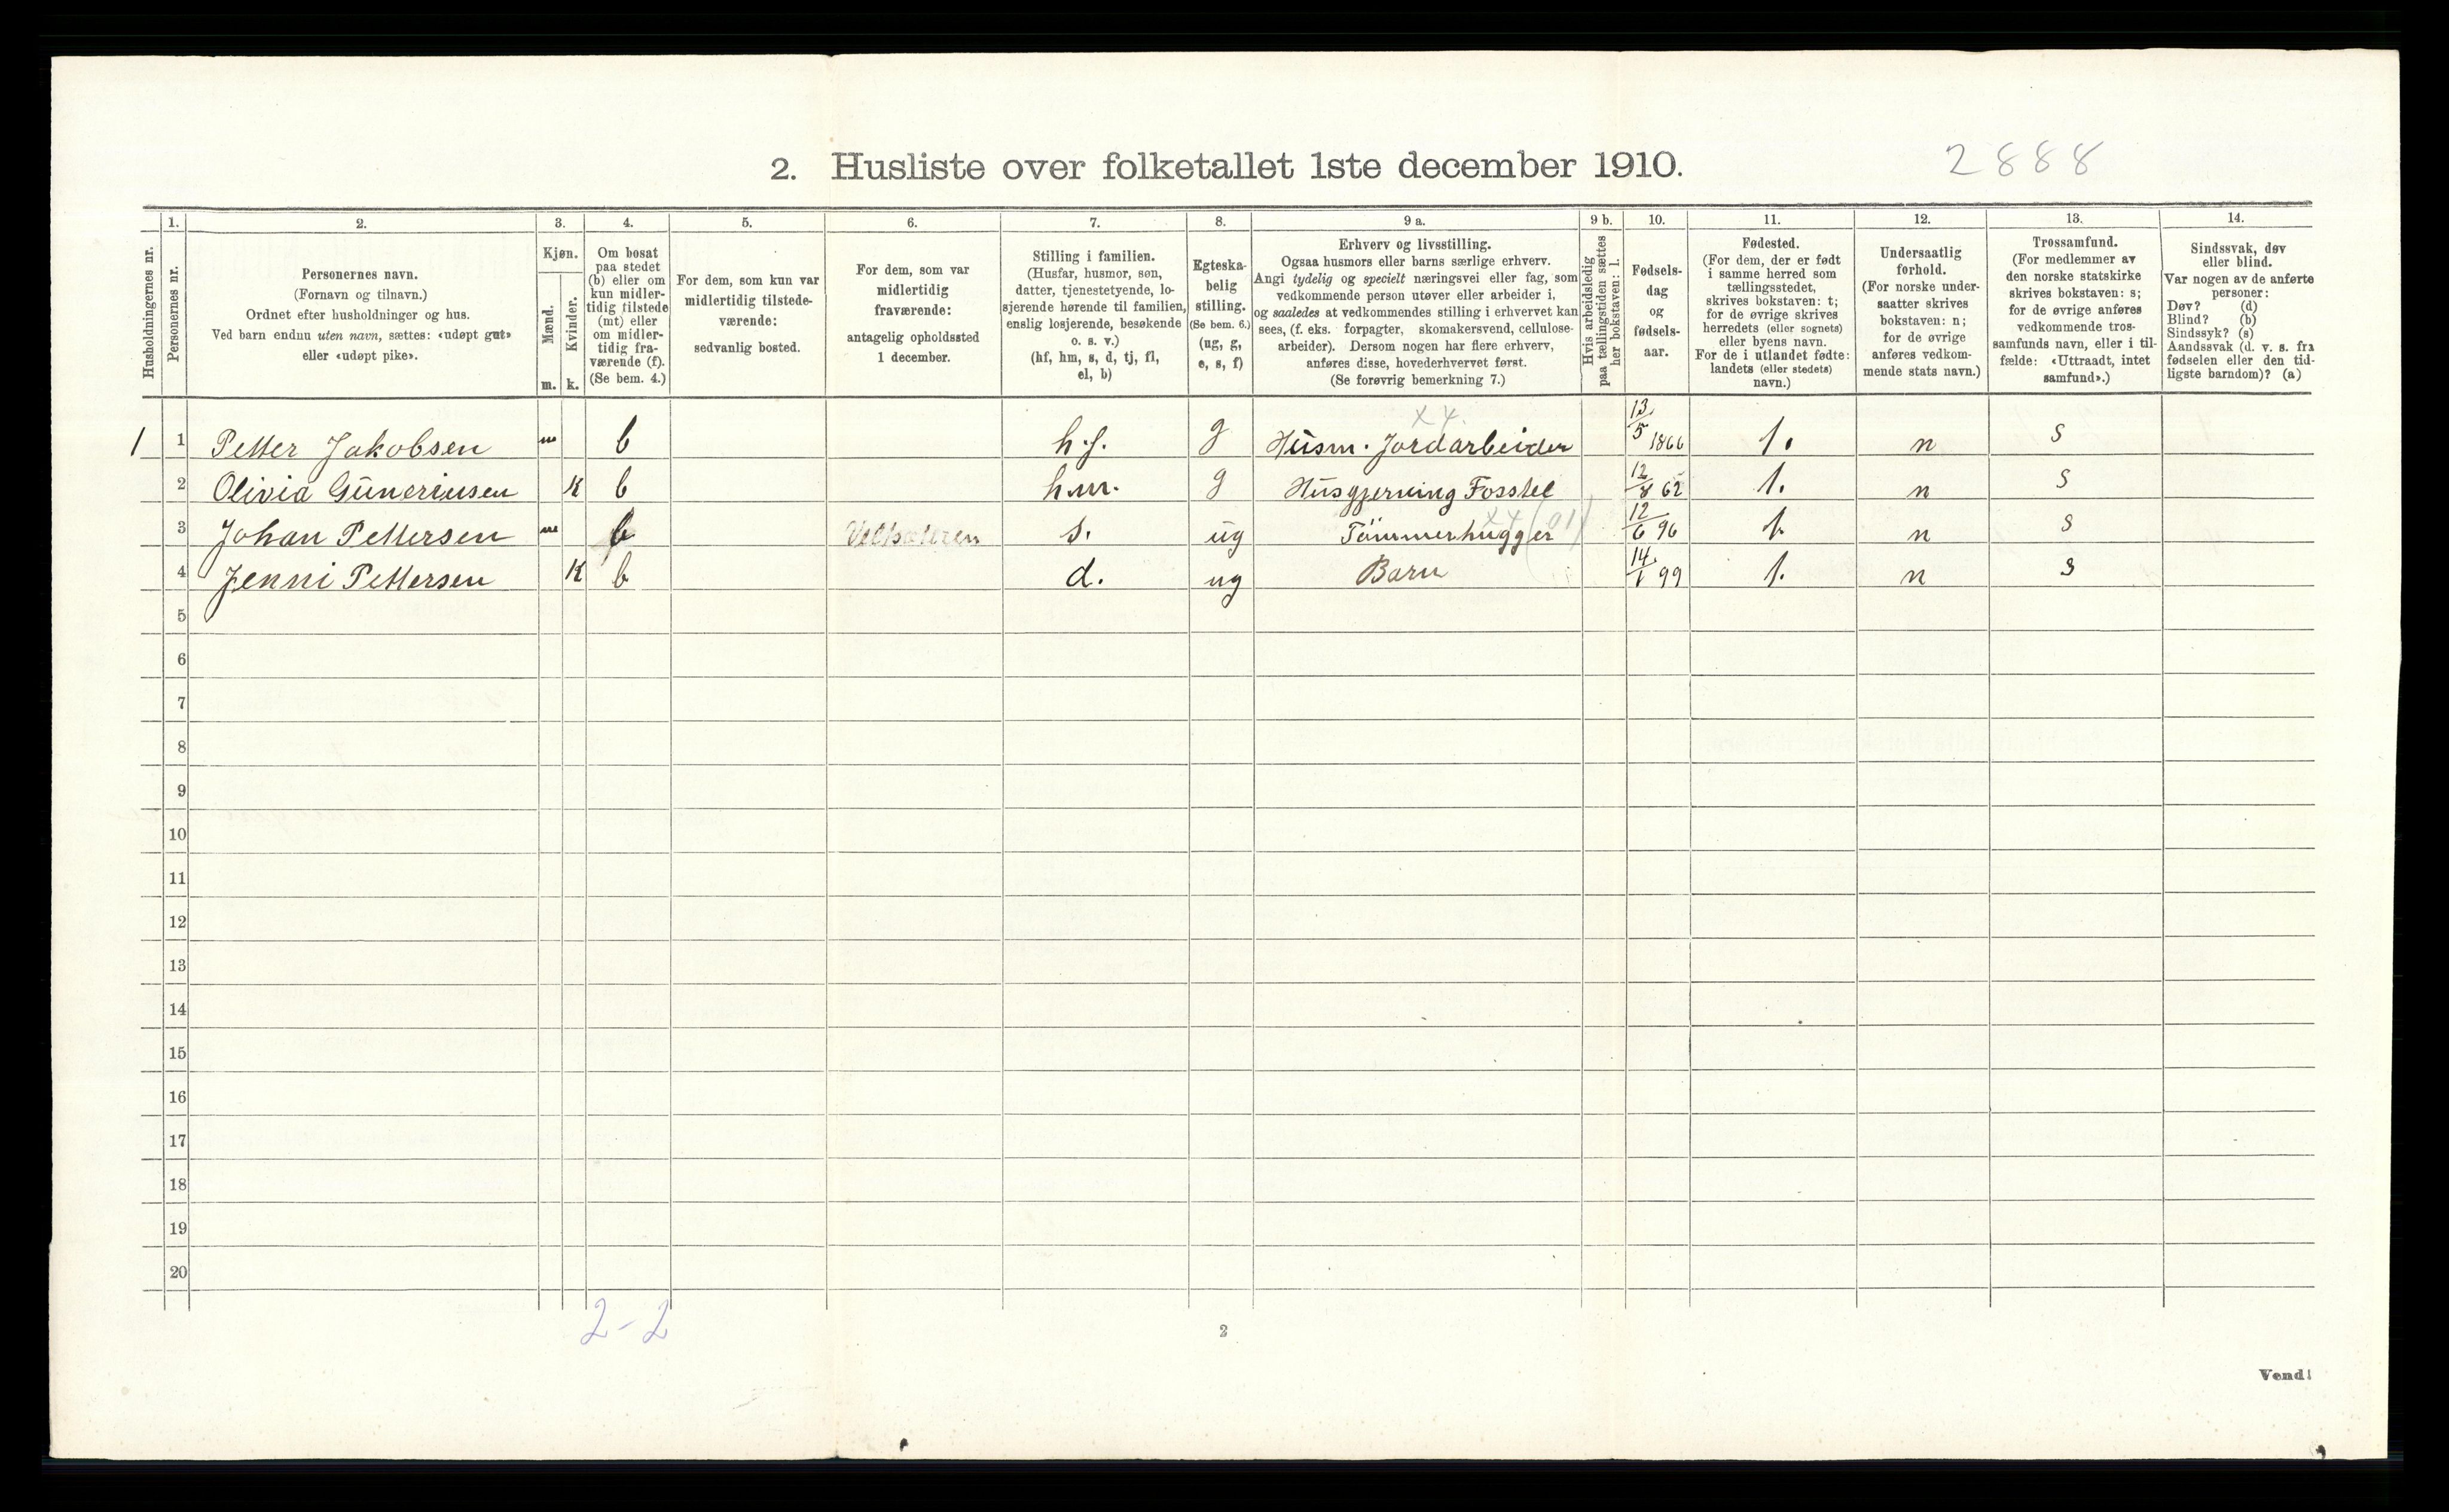 2. Husliste over folketallet 1ste december 1910.
2888
Husholdningernes nr.
1. Personernes nr.
2. Personernes navn.
(Fornavn og tilnavn.)
Ordnet efter husholdninger og hus.
Ved barn endnu uten navn, sættes: «udøpt gut»
eller «udøpt pike».
3. Kjøn.
Mænd. m.
Kvinder. k.
4. Om bosat
paa stedet
(b) eller om
kun midler-
tidig tilstede
(mt) eller
om midler-
tidig fra-
værende (f).
(Se bem. 4.)
5. For dem, som kun var
midlertidig tilstede-
værende:
sedvanlig bosted.
6. For dem, som var
midlertidig
fraværende:
antagelig opholdssted
1 december.
7. Stilling i familien.
(Husfar, husmor, søn,
datter, tjenestetyende, lo-
sjerende hørende til familien,
enslig losjerende, besøkende
o. s. v.)
(hf, hm, s, d, tj, fl,
el, b)
8. Egteska-
belig
stilling.
(Se bem. 6.)
(ug, g,
e, s, f)
9 a. Erhverv og livsstilling.
Ogsaa husmors eller barns særlige erhverv.
Angi tydelig og specielt næringsvei eller fag, som
vedkommende person utøver eller arbeider i,
og saaledes at vedkommendes stilling i erhvervet kan
sees, (f. eks. forpagter, skomakersvend, cellulose-
arbeider). Dersom nogen har flere erhverv,
anføres disse, hovederhvervet først.
(Se forøvrig bemerkning 7.)
9 b. Hvis arbeidsledig
paa tællingstiden sættes
her bokstaven: l.
10. Fødsels-
dag
og
fødsels-
aar.
11. Fødested.
(For dem, der er født
i samme herred som
tællingsstedet,
skrives bokstaven: t;
for de øvrige skrives
herredets (eller sognets)
eller byens navn.
For de i utlandet fødte:
landets (eller stedets)
navn.)
12. Undersaatlig
forhold.
(For norske under-
saatter skrives
bokstaven: n;
for de øvrige
anføres vedkom-
mende stats navn.)
13. Trossamfund.
(For medlemmer av
den norske statskirke
skrives bokstaven: s;
for de øvrige anføres
vedkommende tros-
samfunds navn, eller i til-
fælde: «Uttraadt, intet
samfund».)
14. Sindssvak, døv
eller blind.
Var nogen av de anførte
personer:
Døv? (d)
Blind? (b)
Sindssyk? (s)
Aandssvak (d. v. s. fra
fødselen eller den tid-
ligste barndom)? (a)
x4.
1 1 Petter Jakobsen m b h.f. g Husm. Jordarbeider 13/5 1866 t. n s
2 Olivia Guneriusen K b h.m. g Husgjerning Fosstel 12/8 62 t. n s
x4 (01)
3 Johan Pettersen m b s. ug Tømmerhugger 12/6 96 t. n s
4 Jenni Pettersen K b d. ug Barn 14/1 99 t. n s
5
6
7
8
9
10
11
12
13
14
15
16
17
18
19
20
2-2
2
Vend!